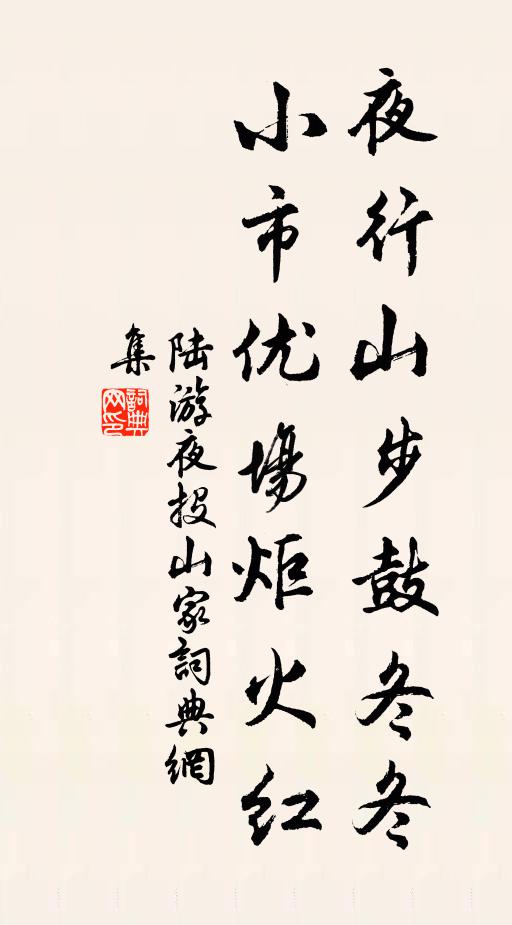 夜行山步鼓冬冬
小市优場炬火红
陆游夜投山家詞典網
集
詞典
网印